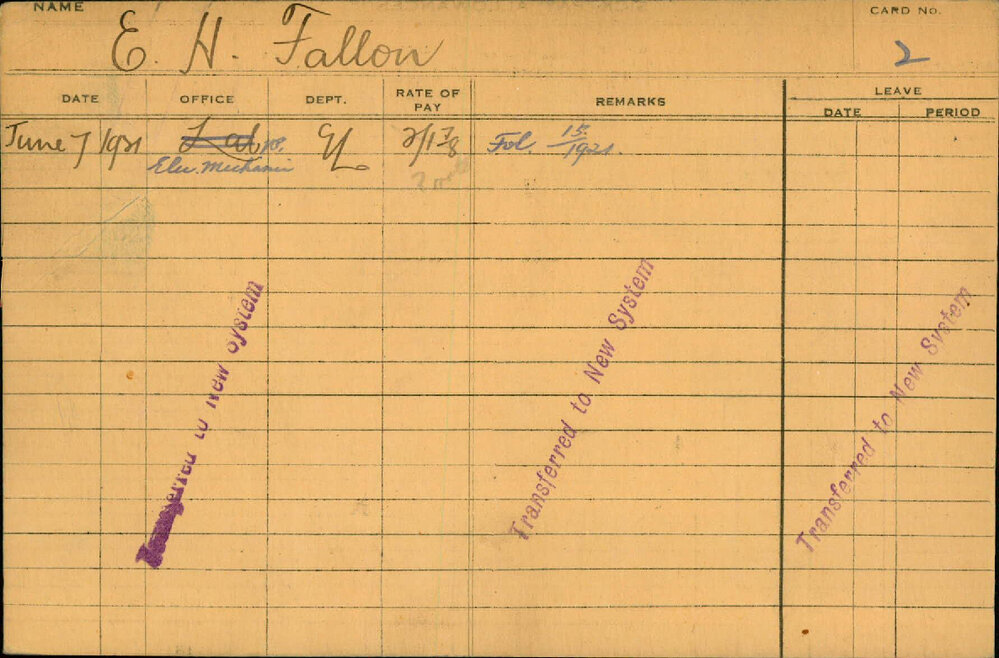 NAME
E. H. Fallon
CARD No.
2
DATE OFFICE DEPT. RATE OF PAY REMARKS LEAVE
DATE PERIOD
June 7 1921 Lab EL 2/1 7/8 Fol. 15/1921.
Elec. Mechanic
Transferred to New System
Transferred to New System
Transferred to New System